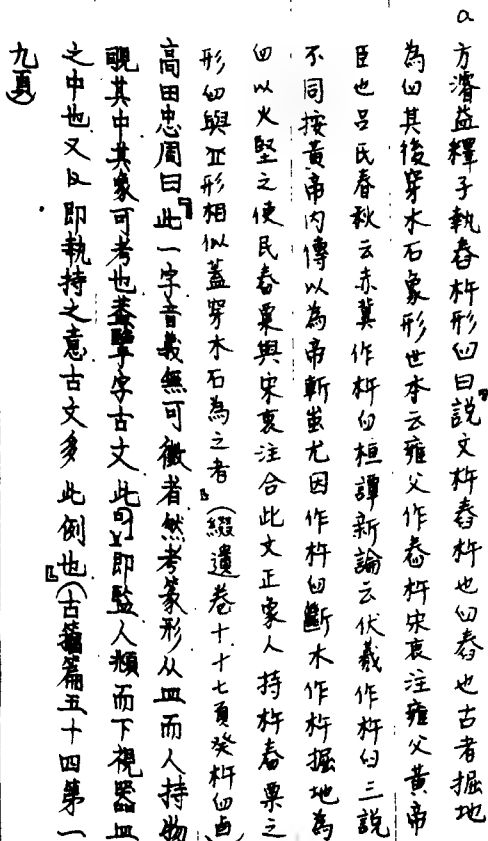 a
方濬益釋子執舂杵形臼曰『說文杵舂杵也臼舂也古者掘地
為臼其後穿木石象形世本云雍父作舂杵宋衷注雍父黃帝
臣也呂氏春秋云赤冀作杵臼桓譚新論云伏羲作杵臼三說
不同按黃帝內傳以為帝斬蚩尤因作杵臼斷木作杵掘地為
臼以火堅之使民舂粟與宋衷注合此文正象人持杵舂粟之
形臼與亞形相似蓋穿木石為之者』(綴遺卷十十七頁癸杵臼卣)
高田忠周曰『此一字音義無可徵者然考篆形从皿而人持物
覗其中其象可考也葢字古文此可即監人頫而下視器皿
之中也又即執持之意古文多此例也』(古籀篇五十四第一
九頁)